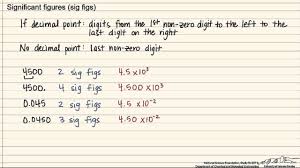 Significant figures (sig figs)
If decimal point: digits from the 1st non-zero digit to the left to the
last digit on the right
No decimal point: last non-zero digit
4500 2 sig figs 4.5 x 10³
4500. 4 sig figs 4.500 x 10³
0.045 2 sig figs 4.5 x 10⁻²
0.0450 3 sig figs 4.50 x 10⁻²